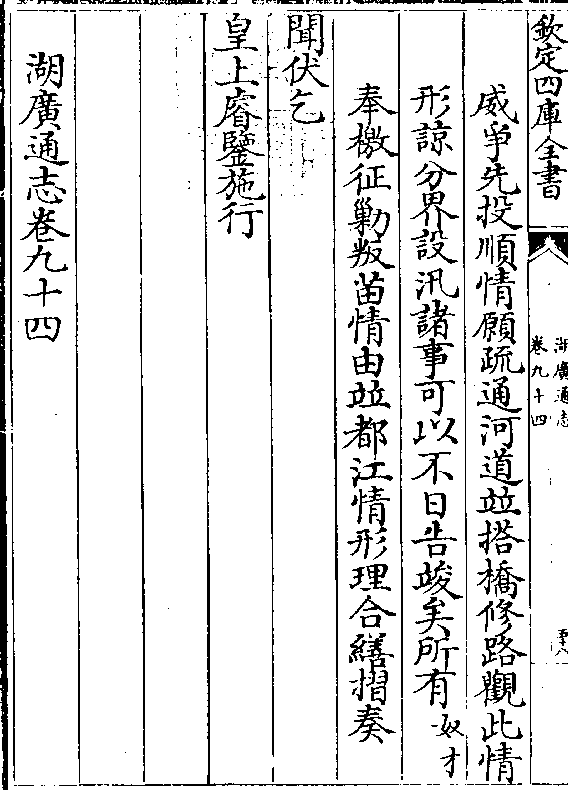 欽定四庫全書
湖廣通志
卷九十四
五十八
威爭先投順情願疏通河道並搭橋修路觀此情
形諒分界設汛諸事可以不日告竣矣所有奴才
奉檄征勦叛苗情由並都江情形理合繕摺奏
聞伏乞
皇上睿鑒施行
湖廣通志卷九十四